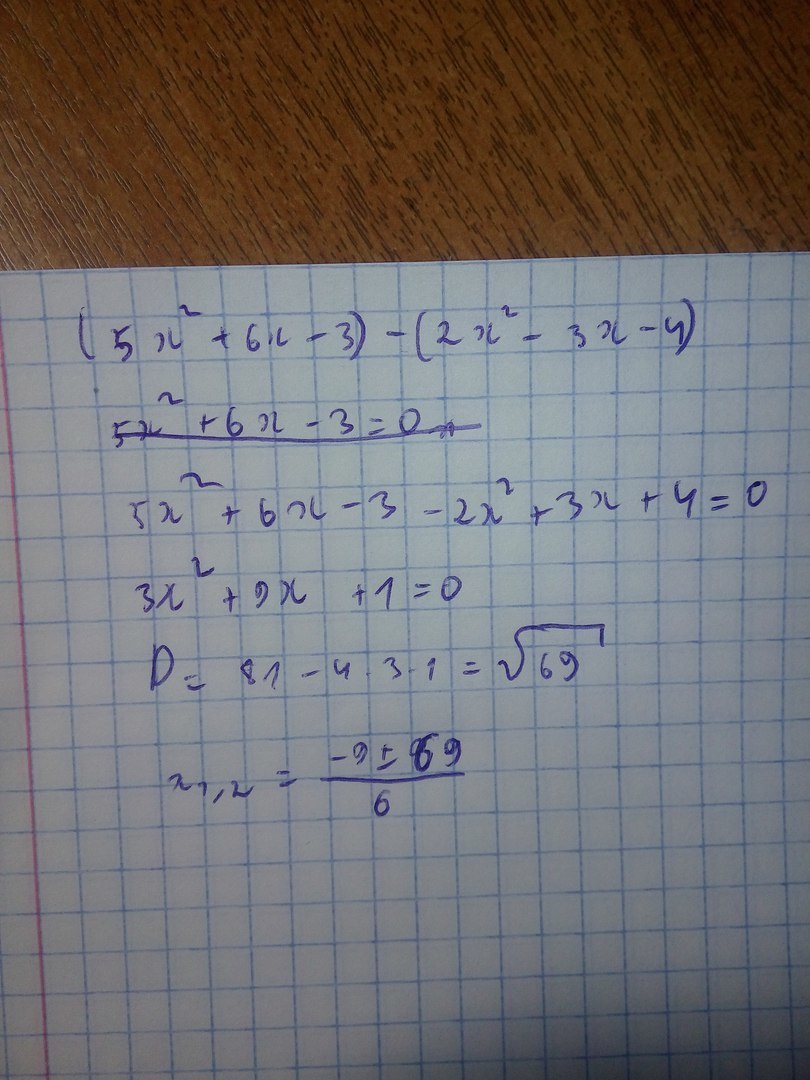 (5x² + 6x - 3) - (2x² - 3x - 4)
5x² + 6x - 3 = 0
5x² + 6x - 3 - 2x² + 3x + 4 = 0
3x² + 9x + 1 = 0
D = 81 - 4 · 3 · 1 = √69
x₁,₂ = (-9 ± 69)/6